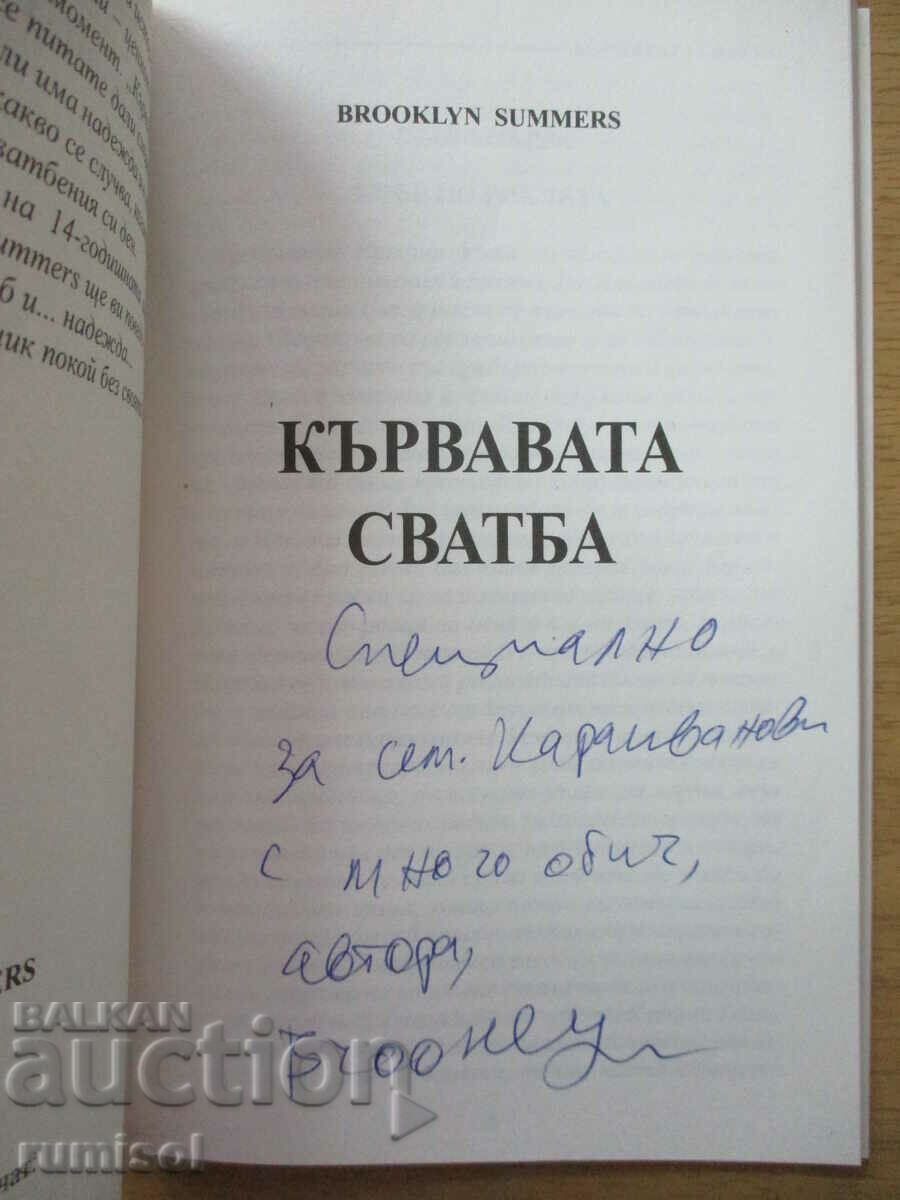 момент.
се питате дали
ли има надежда
какво се случва,
сватбения си ден...
на 14-годишната
Summers ще ви
б и... надежда...
ник покой без
BROOKLYN SUMMERS
КЪРВАВАТА
СВАТБА
Специално
за сем. Караиванови
с много обич,
автора,
ERS
BALKAN
auction
rumisol